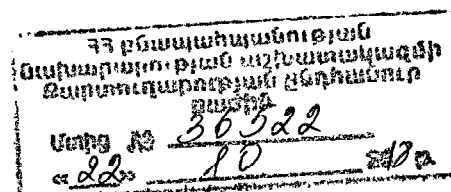 ՀՀ բնապահպանության
նախարարության աշխատակազմի
Քարտուղարության Ընդհանուր
բաժին
Մտից № 36522
«22» 10 2018 թ.